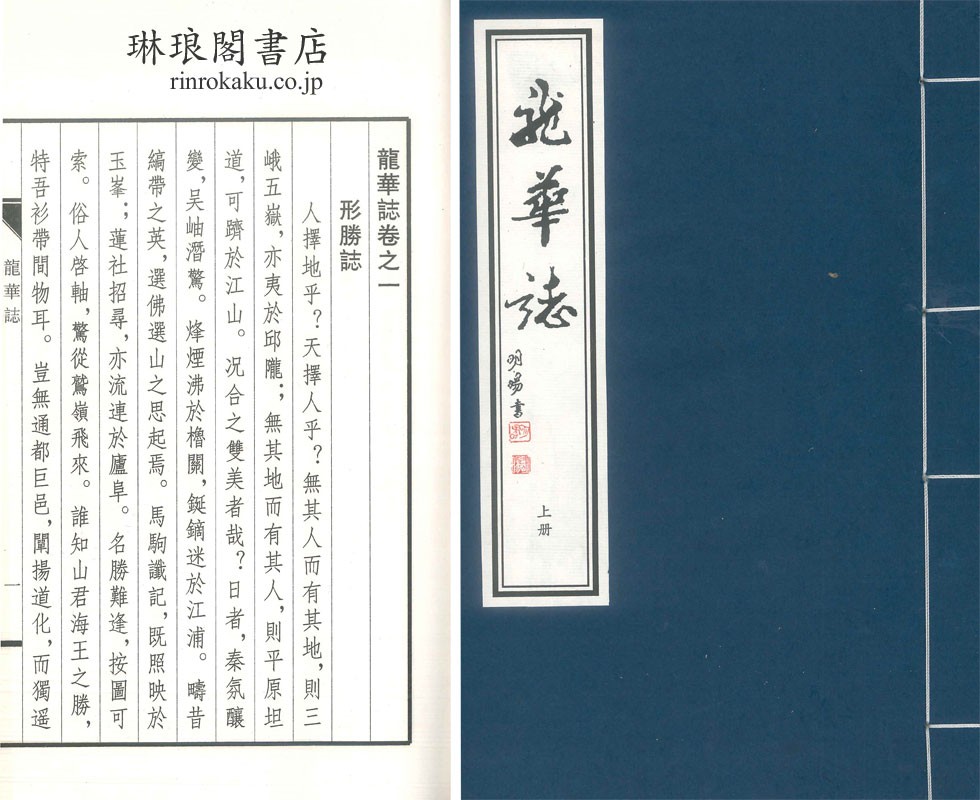 琳琅閣書店
rinrokaku.co.jp
龍華誌卷之一
形勝誌
人擇地乎？天擇人乎？無其人而有其地，則三
峨五嶽，亦夷於邱隴；無其地而有其人，則平原坦
道，可躋於江山。况合之雙美者哉？日者，秦氛釀
變，吳岫潛驚。烽煙沸於櫓關，鋋鏑迷於江浦。疇昔
縞帶之英，選佛選山之思起焉。馬駒讖記，既照映於
玉峯；蓮社招尋，亦流連於廬阜。名勝難逢，按圖可
索。俗人啓軸，驚從鷲嶺飛來。誰知山君海王之勝，
特吾衫帶間物耳。豈無通都巨邑，闡揚道化，而獨遥
龍華誌
一
龍華誌
明暘書
上册